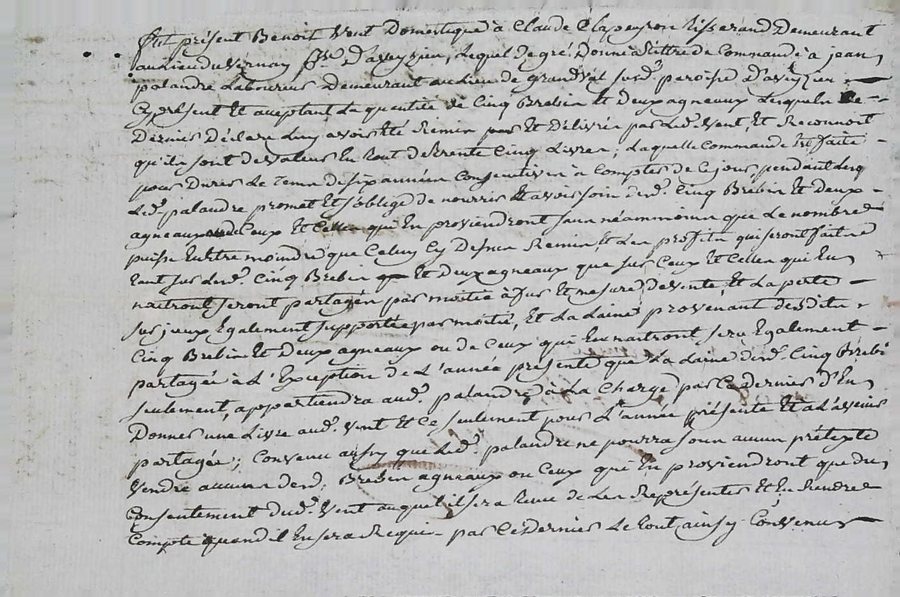 fut présent Benoit Vent Domestique à Claude Clapeyron Tisserand Demeurant
au lieu du Vernay psse. D'aveyzieu, Lequel de gré Donne à tittre de Commande à jean
palandre Laboureur Demeurant au lieu de grandval susd. paroisse D'aveyzieu
Cy présent Et aceptant La quantité de Cinq Brebis Et Deux agneaux Lesquels Ce
Dernier Déclare Luy avoir été Remis pour Et Délivrés par Led. Vent, Et Reconnoit
qu'ils sont de valeur En tout de trente Cinq Livres; Laquelle Commande Est faitte
pour Durer Le tems de six années Consecutives à Compter de Ce jour, pendant Lesq
Led. palandre promet Et s'oblige de nourrir Et avoir soin desd. Cinq Brebis Et Deux
agneaux ou Ceux Et Celles qui En proviendront sans néammoins que Le nombre
puisse Estre moindre que Celuy Cy Dessus Remis, Et Les profits qui seront faits
tant sur Lesd. Cinq Brebis Et Deux agneaux que sur Ceux Et Celles qui En
naitront, seront partagés par moitié à fur Et mesure de vente, Et La perte
sur jceux Egalement supportée par moitié, Et La Laine provenant desdits
Cinq Brebis Et Deux agneaux ou de Ceux qui En naitront, sera Egalement
partagée à L'Exception de L'année présente que La Laine desd. Cinq Brebis
seulement, appartiendra aud. palandre à La Charge par Ce dernier D'En
Donner une Livre aud. Vent Et Ce seulement pour L'année présente Et à L'avenir
partagée; Convenu aussy que Led. palandre ne pourra sous aucun prétexte
Vendre aucun desd. Brebis agneaux ou Ceux qui En proviendront que du
Consentement dud. Vent auquel il sera tenu de Les Représenter Et En Rendre
Compte quand il En sera Requis par Ce Dernier Le tout ainsy Convenu